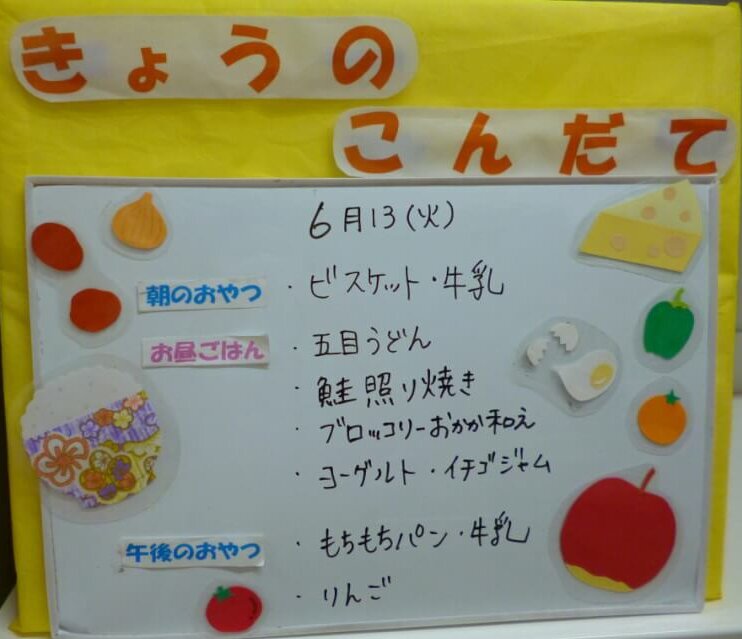 きょうの
こんだて
6月13(火)
朝のおやつ ・ビスケット・牛乳
お昼ごはん ・五目うどん
・鮭照り焼き
・ブロッコリーおかか和え
・ヨーグルト・イチゴジャム
午後のおやつ ・もちもちパン・牛乳
・りんご